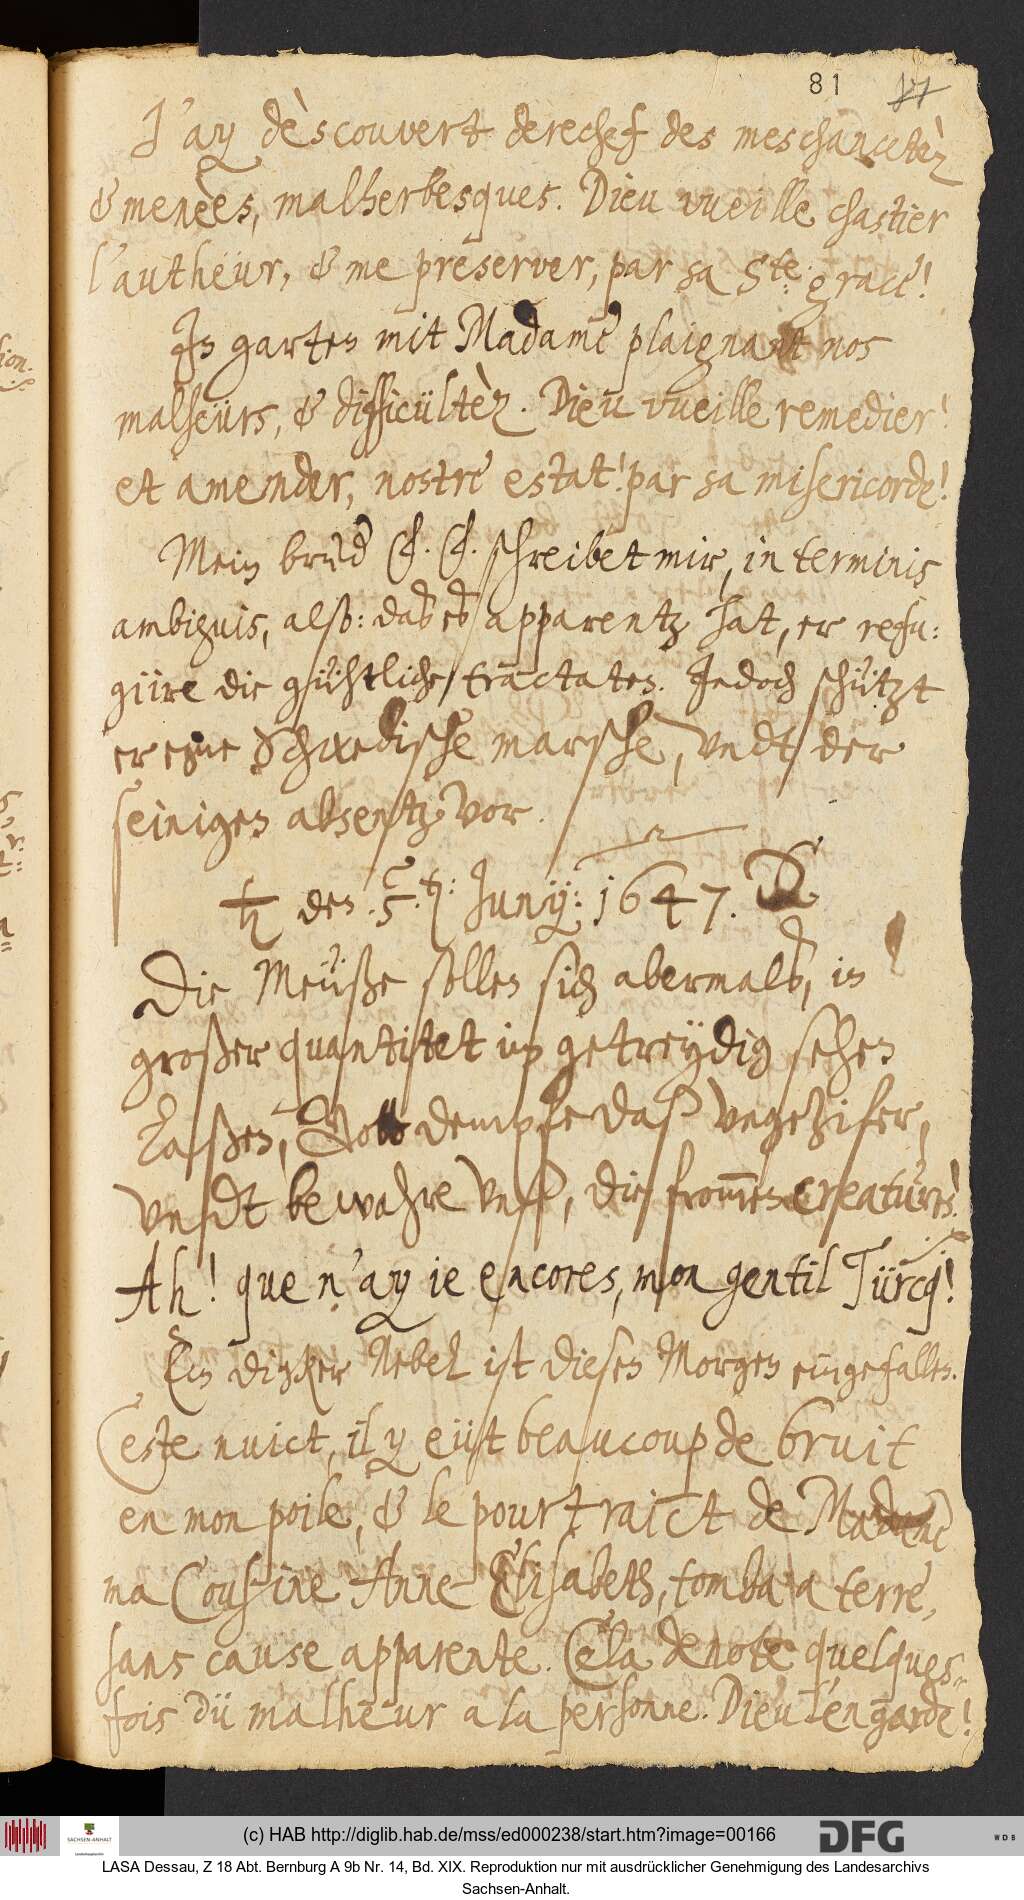 81 17
J'ay dèscouvert derechef des meschancetèz
& menèes, malherbesques. Dieu vueille chastier
l'autheur, & me preserver, par sa Ste: grace!
In garten mit Madame plaignant nos
malheürs, & difficültèz. Dieu vueille remedier!
et amender, nostre estat! par sa misericorde!
Mein brud schreibet mir, in terminis
ambiguis, alß: daß es apparentz hat, er refu:
giire die gühtliche tractaten. Jedoch schützt
er eine Schwedische marche, vndt der
seinigen absentz vor.
♄ den 5. Junij: 1647.
Die Meüße sollen sich abermalß, in
großer quantitet im getreydig sehen
laßen, Gott dempfe daß vngeziefer,
vndt bewahre vnß, die frommen creaturen!
Ah! que n'ay ie encores, mon gentil Türcq!
Ein dicker Nebel ist diesen Morgen eingefallen.
Ceste nuict, il y eüst beaucoup de bruit
en mon poile, & le pourtraict de Madame
ma Cousine Anne Elisabeth, tomba a terre,
sans cause apparente. Cela denote quelques-
fois dü malheur a la personne. Dieu l'en garde!
(c) HAB http://diglib.hab.de/mss/ed000238/start.htm?image=00166
SACHSEN-ANHALT
DFG
WDB
LASA Dessau, Z 18 Abt. Bernburg A 9b Nr. 14, Bd. XIX. Reproduktion nur mit ausdrücklicher Genehmigung des Landesarchivs
Sachsen-Anhalt.